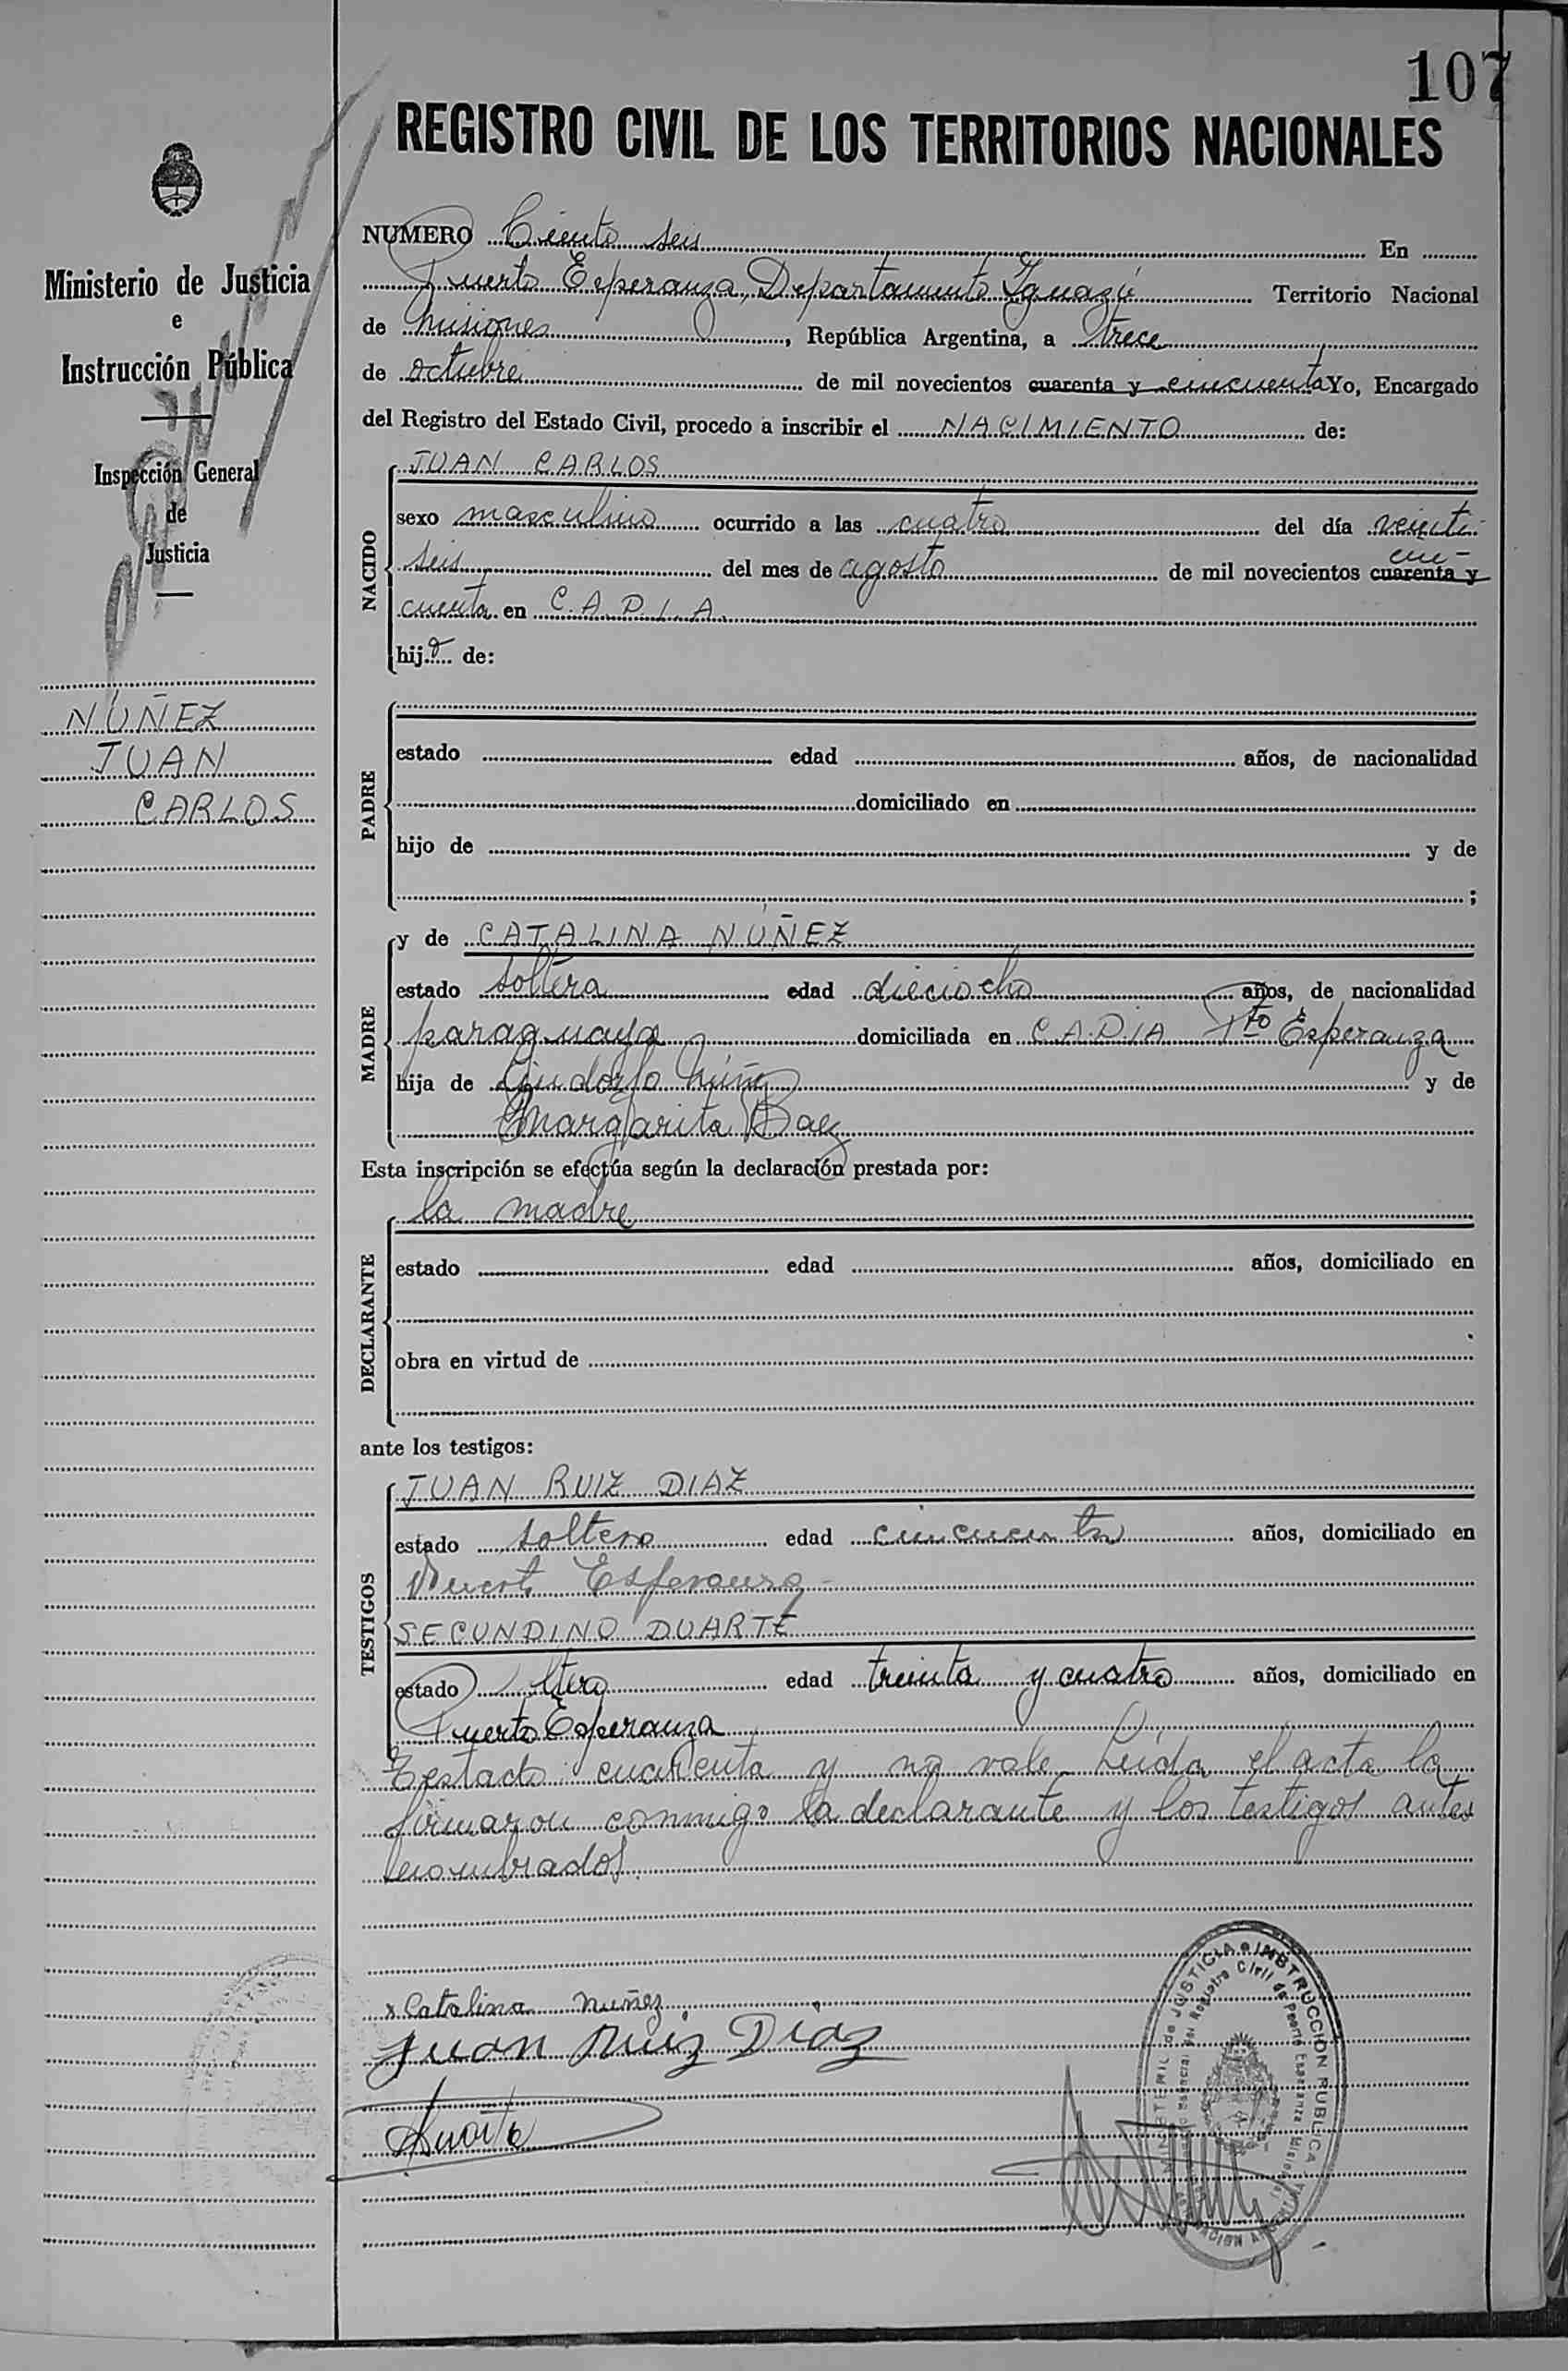 107
REGISTRO CIVIL DE LOS TERRITORIOS NACIONALES
Ministerio de Justicia
e
Instrucción Pública
Inspección General
de
Justicia
NUÑEZ
JUAN
CARLOS
NUMERO Ciento seis En
Puerto Esperanza, Departamento Iguazú Territorio Nacional
de Misiones, República Argentina, a trece
de octubre de mil novecientos cuarenta y cincuenta Yo, Encargado
del Registro del Estado Civil, procedo a inscribir el NACIMIENTO de:
NACIDO
JUAN CARLOS
sexo masculino ocurrido a las cuatro del día veinti
seis del mes de agosto de mil novecientos cuarenta y cin-
cuenta en C.A.D.I.A.
hijo de:
PADRE
estado edad años, de nacionalidad
domiciliado en
hijo de y de
;
MADRE
y de CATALINA NÚÑEZ
estado soltera edad dieciocho años, de nacionalidad
paraguaya domiciliada en C.A.D.I.A Pto Esperanza
hija de Núñez y de
Margarita Baez
Esta inscripción se efectúa según la declaración prestada por:
DECLARANTE
la madre
estado edad años, domiciliado en
obra en virtud de
ante los testigos:
TESTIGOS
JUAN RUIZ DIAZ
estado soltero edad cincuenta años, domiciliado en
Puerto Esperanza-
SECUNDINO DUARTE
estado soltero edad treinta y cuatro años, domiciliado en
Puerto Esperanza
Testado: cuarenta y no vale. Leída el acta la
firmaron conmigo la declarante y los testigos antes
nombrados.
x Catalina nuñez
Juan Ruiz Diaz
Duarte
MINISTERIO de JUSTICIA e INSTRUCCION PUBLICA
Registro Civil de Puerto Esperanza Misiones